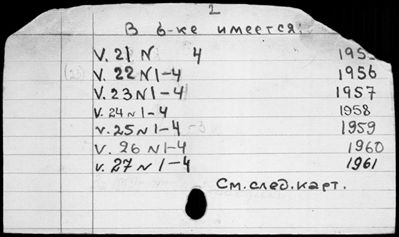 2
В б-ке имеется:
V. 21 N 4 1955
V. 22 N 1-4 1956
V. 23 N 1-4 1957
V. 24 N 1-4 1958
V. 25 N 1-4 1959
V. 26 N 1-4 1960
V. 27 N 1-4 1961
См. след. карт.